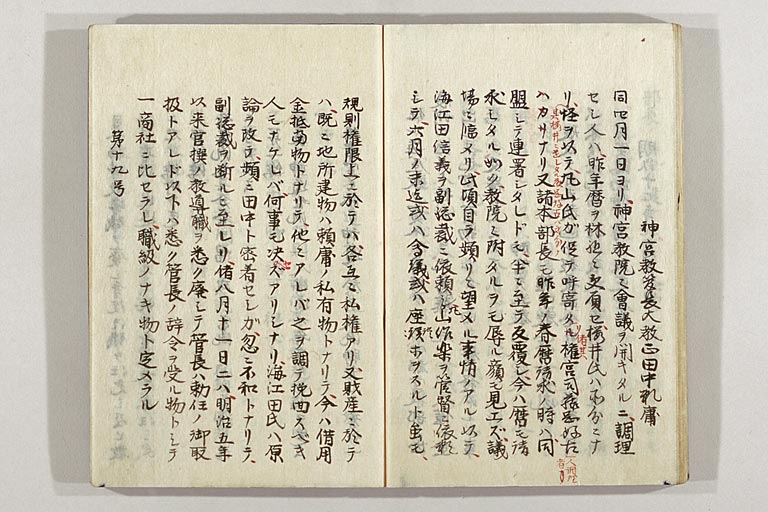 神宮教管長大教正田中頼庸
同四月一日ヨリ、神宮教院ニ會議ヲ開キタルニ、調理
セシ人ハ、昨年暦ヲ林
リ、怪ヲ以テ、凡山氏が促テ呼寄タル、權宮司
ハカサナリ又諸本部長モ昨年ノ春暦ノ時ハ同
盟シテ連署シタレドモ、半ニ至テ反覆シ今ハ暦モ請
永シタル如ク教院ニ附タルヲモ辱ル顔モ見エズ議
場ニ臨メリ此項自ラ頻リニ望メル事情ノアルヲ以テ、
海江田信義ヲ副総裁ニ依頼シ、山治樂ヲ管督ニ依頼
シテ、六月ノ末迄或ハ會議或ハ座談ヲスルト雖モ、
規則權限上ニ於テハ、各互ニ私權アリ又財産ニ於テ
ハ、既ニ地所建物ハ頼庸ノ私有物トナリテ今ハ借用
金抵當物トナリテ、他ニアレバ之ヲ調テ挽回スベキ
人モナケレバ何事モ決ズアリシナリ、海江田氏ハ原
論ヲ改テ、頻ニ田中ト密着セシガ、忽ニ不和トナリテ、
副総裁ヲ断ルニ至レリ、偖八月十一日ニハ、明治五年
以来官撰ノ教導職ヲ悉ク廃シテ管長ハ勅任ノ御取
扱トアレド、以下ハ悉ク管長ノ辞令ヲ受ル物トシテ
一商社ニ比セラレ、職級ノナキ物ト定メラル
第十九号